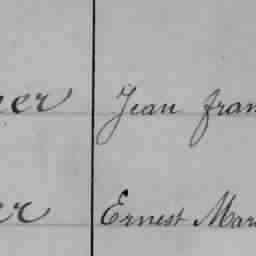 ner Jean fran
er Ernest Mar